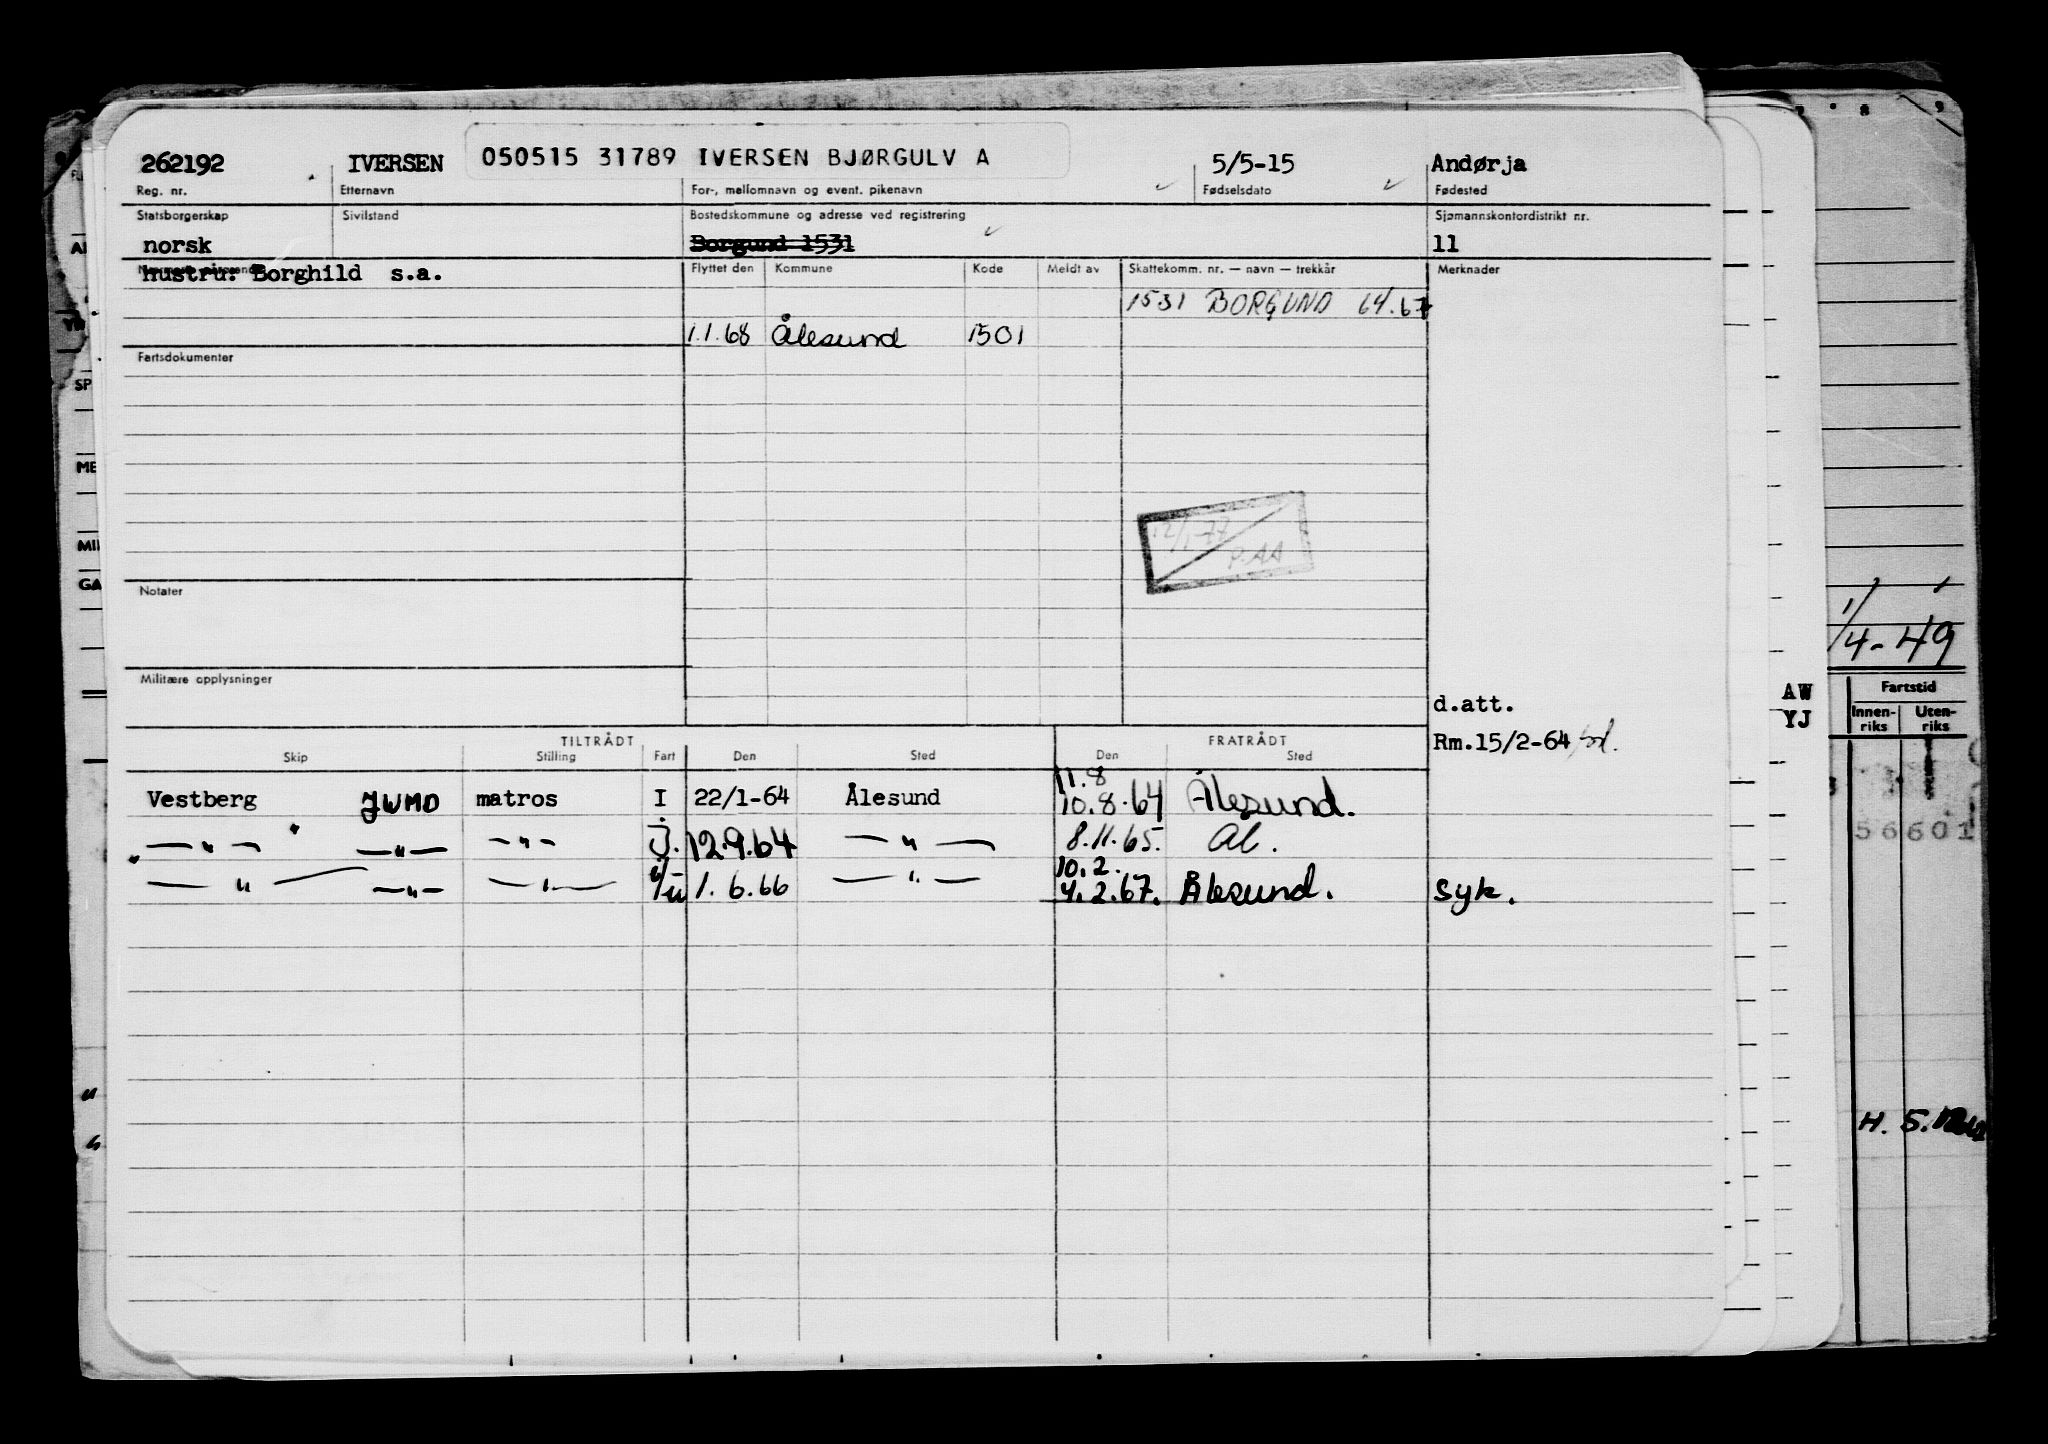 262192 IVERSEN 050515 31789 IVERSEN BJØRGULV A 5/5-15 Andørja
Reg. nr. Etternavn For-, mellomnavn og event. pikenavn Fødselsdato Fødested
Statsborgerskap Sivilstand Bostedskommune og adresse ved registrering Sjømannskontordistrikt nr.
norsk Borgund 1531 11
hustru: Borghild s.a. Flyttet den Kommune Kode Meldt av Skattekomm. nr. — navn — trekkår Merknader
1531 BORGUND 64.67
1.1.68 Ålesund 1501
Fartsdokumenter
12/1-77
P.AA
Notater
1/4-49
Militære opplysninger
Fartstid
AW
d.att.
Innen-riks Uten-riks
YJ
TILTRÅDT FRATRÅDT
Rm.15/2-64
Skip Stilling Fart Den Sted Den Sted
11.8
Vestberg JWMO matros I 22/1-64 Ålesund 10.8.64 Ålesund.
— " — — " — — " — J. 12.9.64 — " — 8.11.65. Ål.
56601
10.2.
— " — — " — — " — i/u 1.6.66 — " — 4.2.67. Ålesund. syk.
H. 5.